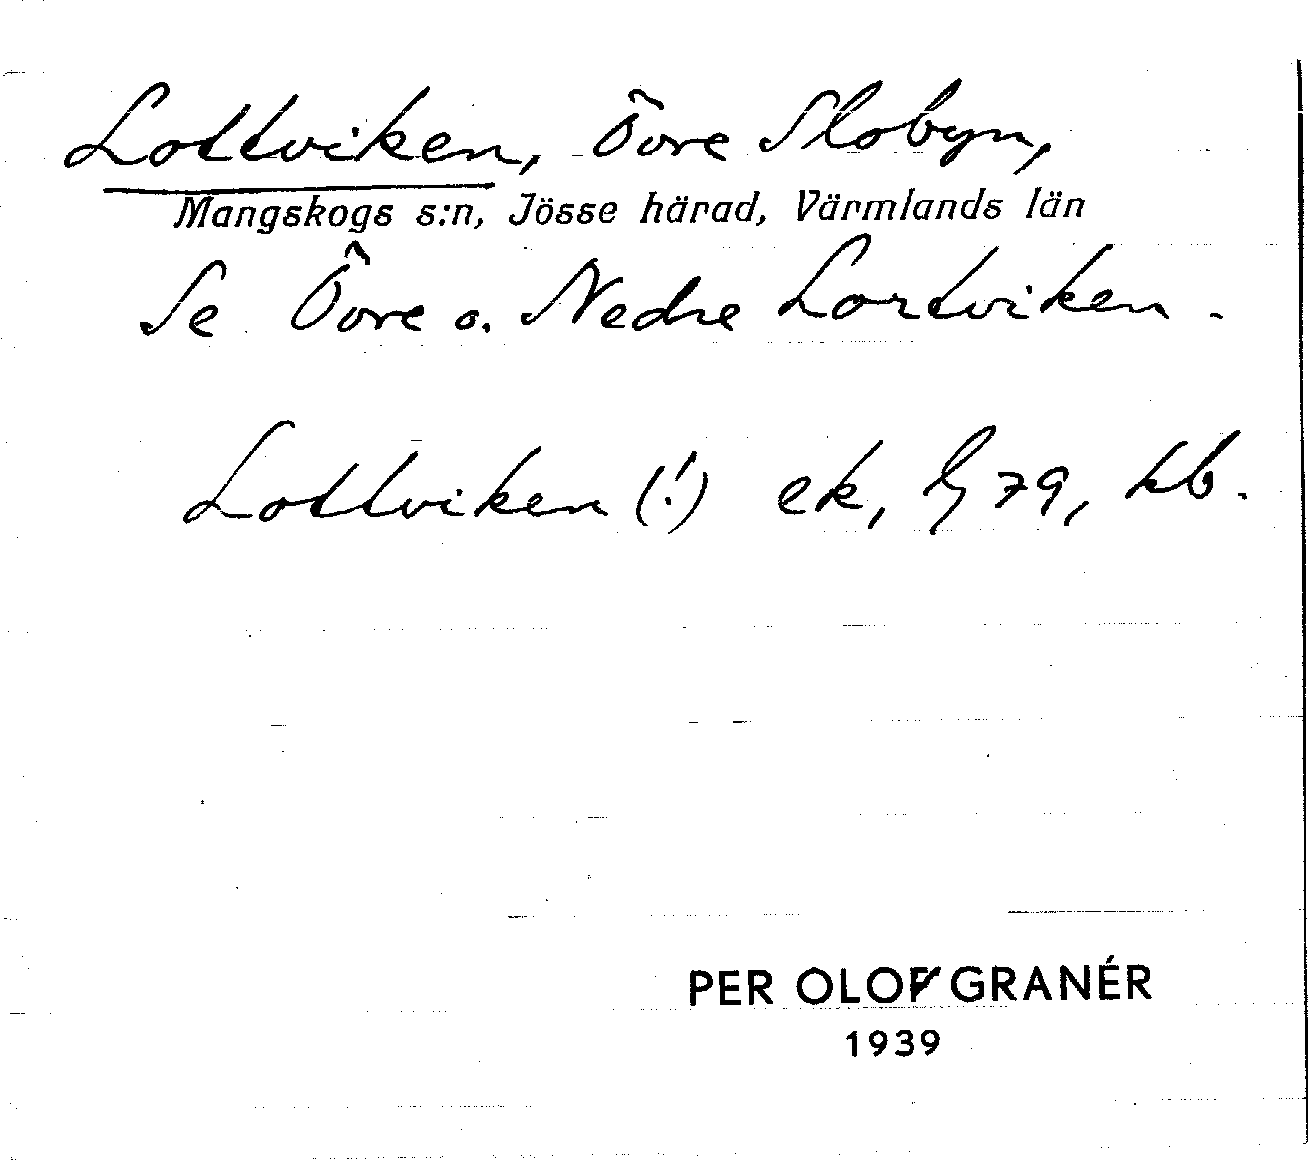 Lottviken, Övre Slobyn,
Mangskogs s:n, Jösse härad, Värmlands län
Se Övre o. Nedre Lortviken.
Lottviken (!) ek, G 79, kb.
PER OLOF GRANÉR
1939